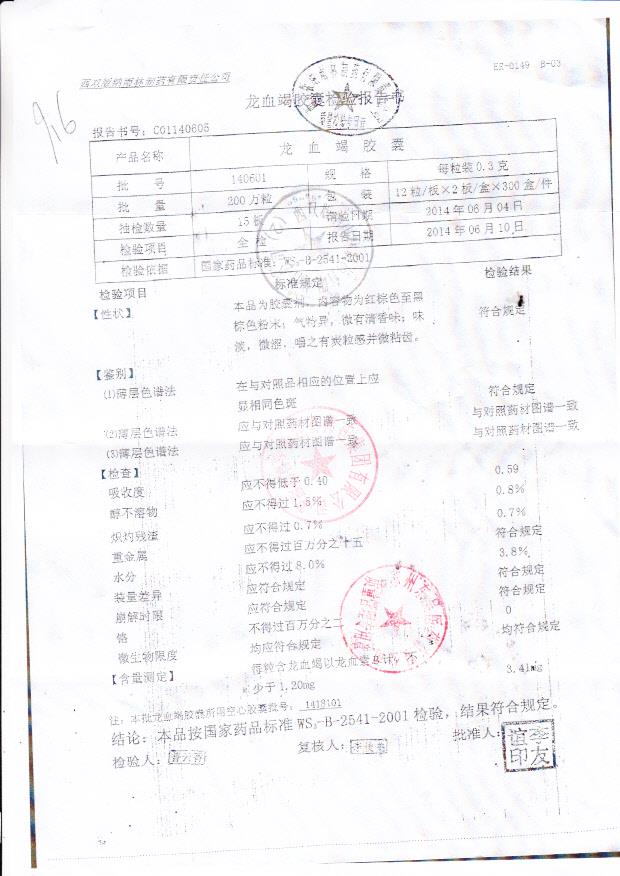 西双版纳雨林制药有限责任公司
ER-0149 B-03
龙血竭胶囊检验报告书
9.6
报告书号：C01140605
产品名称 龙血竭胶囊
批号 140601 规格 每粒装0.3克
批量 200万粒 包装 12粒/板×2板/盒×300盒/件
抽检数量 15板 请验日期 2014年06月04日
检验项目 全检 报告日期 2014年06月10日
检验依据 国家药品标准：WS₃-B-2541-2001
检验项目 标准规定 检验结果
【性状】 本品为胶囊剂，内容物为红棕色至黑 符合规定
棕色粉末；气特异，微有清香味；味
淡，微涩，嚼之有炭粒感并微粘齿。
【鉴别】
(1)薄层色谱法 在与对照品相应的位置上应 符合规定
显相同色斑
(2)薄层色谱法 应与对照药材图谱一致 与对照药材图谱一致
(3)薄层色谱法 应与对照药材图谱一致 与对照药材图谱一致
【检查】
吸收度 应不得低于0.40 0.59
醇不溶物 应不得过1.5% 0.8%
炽灼残渣 应不得过0.7% 0.7%
重金属 应不得过百万分之十五 符合规定
水分 应不得过8.0% 3.8%
装量差异 应符合规定 符合规定
崩解时限 应符合规定 符合规定
铬 不得过百万分之二 0
微生物限度 均应符合规定 均符合规定
【含量测定】 每粒含龙血竭以龙血素 3.41mg
少于1.20mg
注：本批龙血竭胶囊所用空心胶囊批号：1413101
结论：本品按国家药品标准WS₃-B-2541-2001检验，结果符合规定。
检验人： 复核人： 批准人：